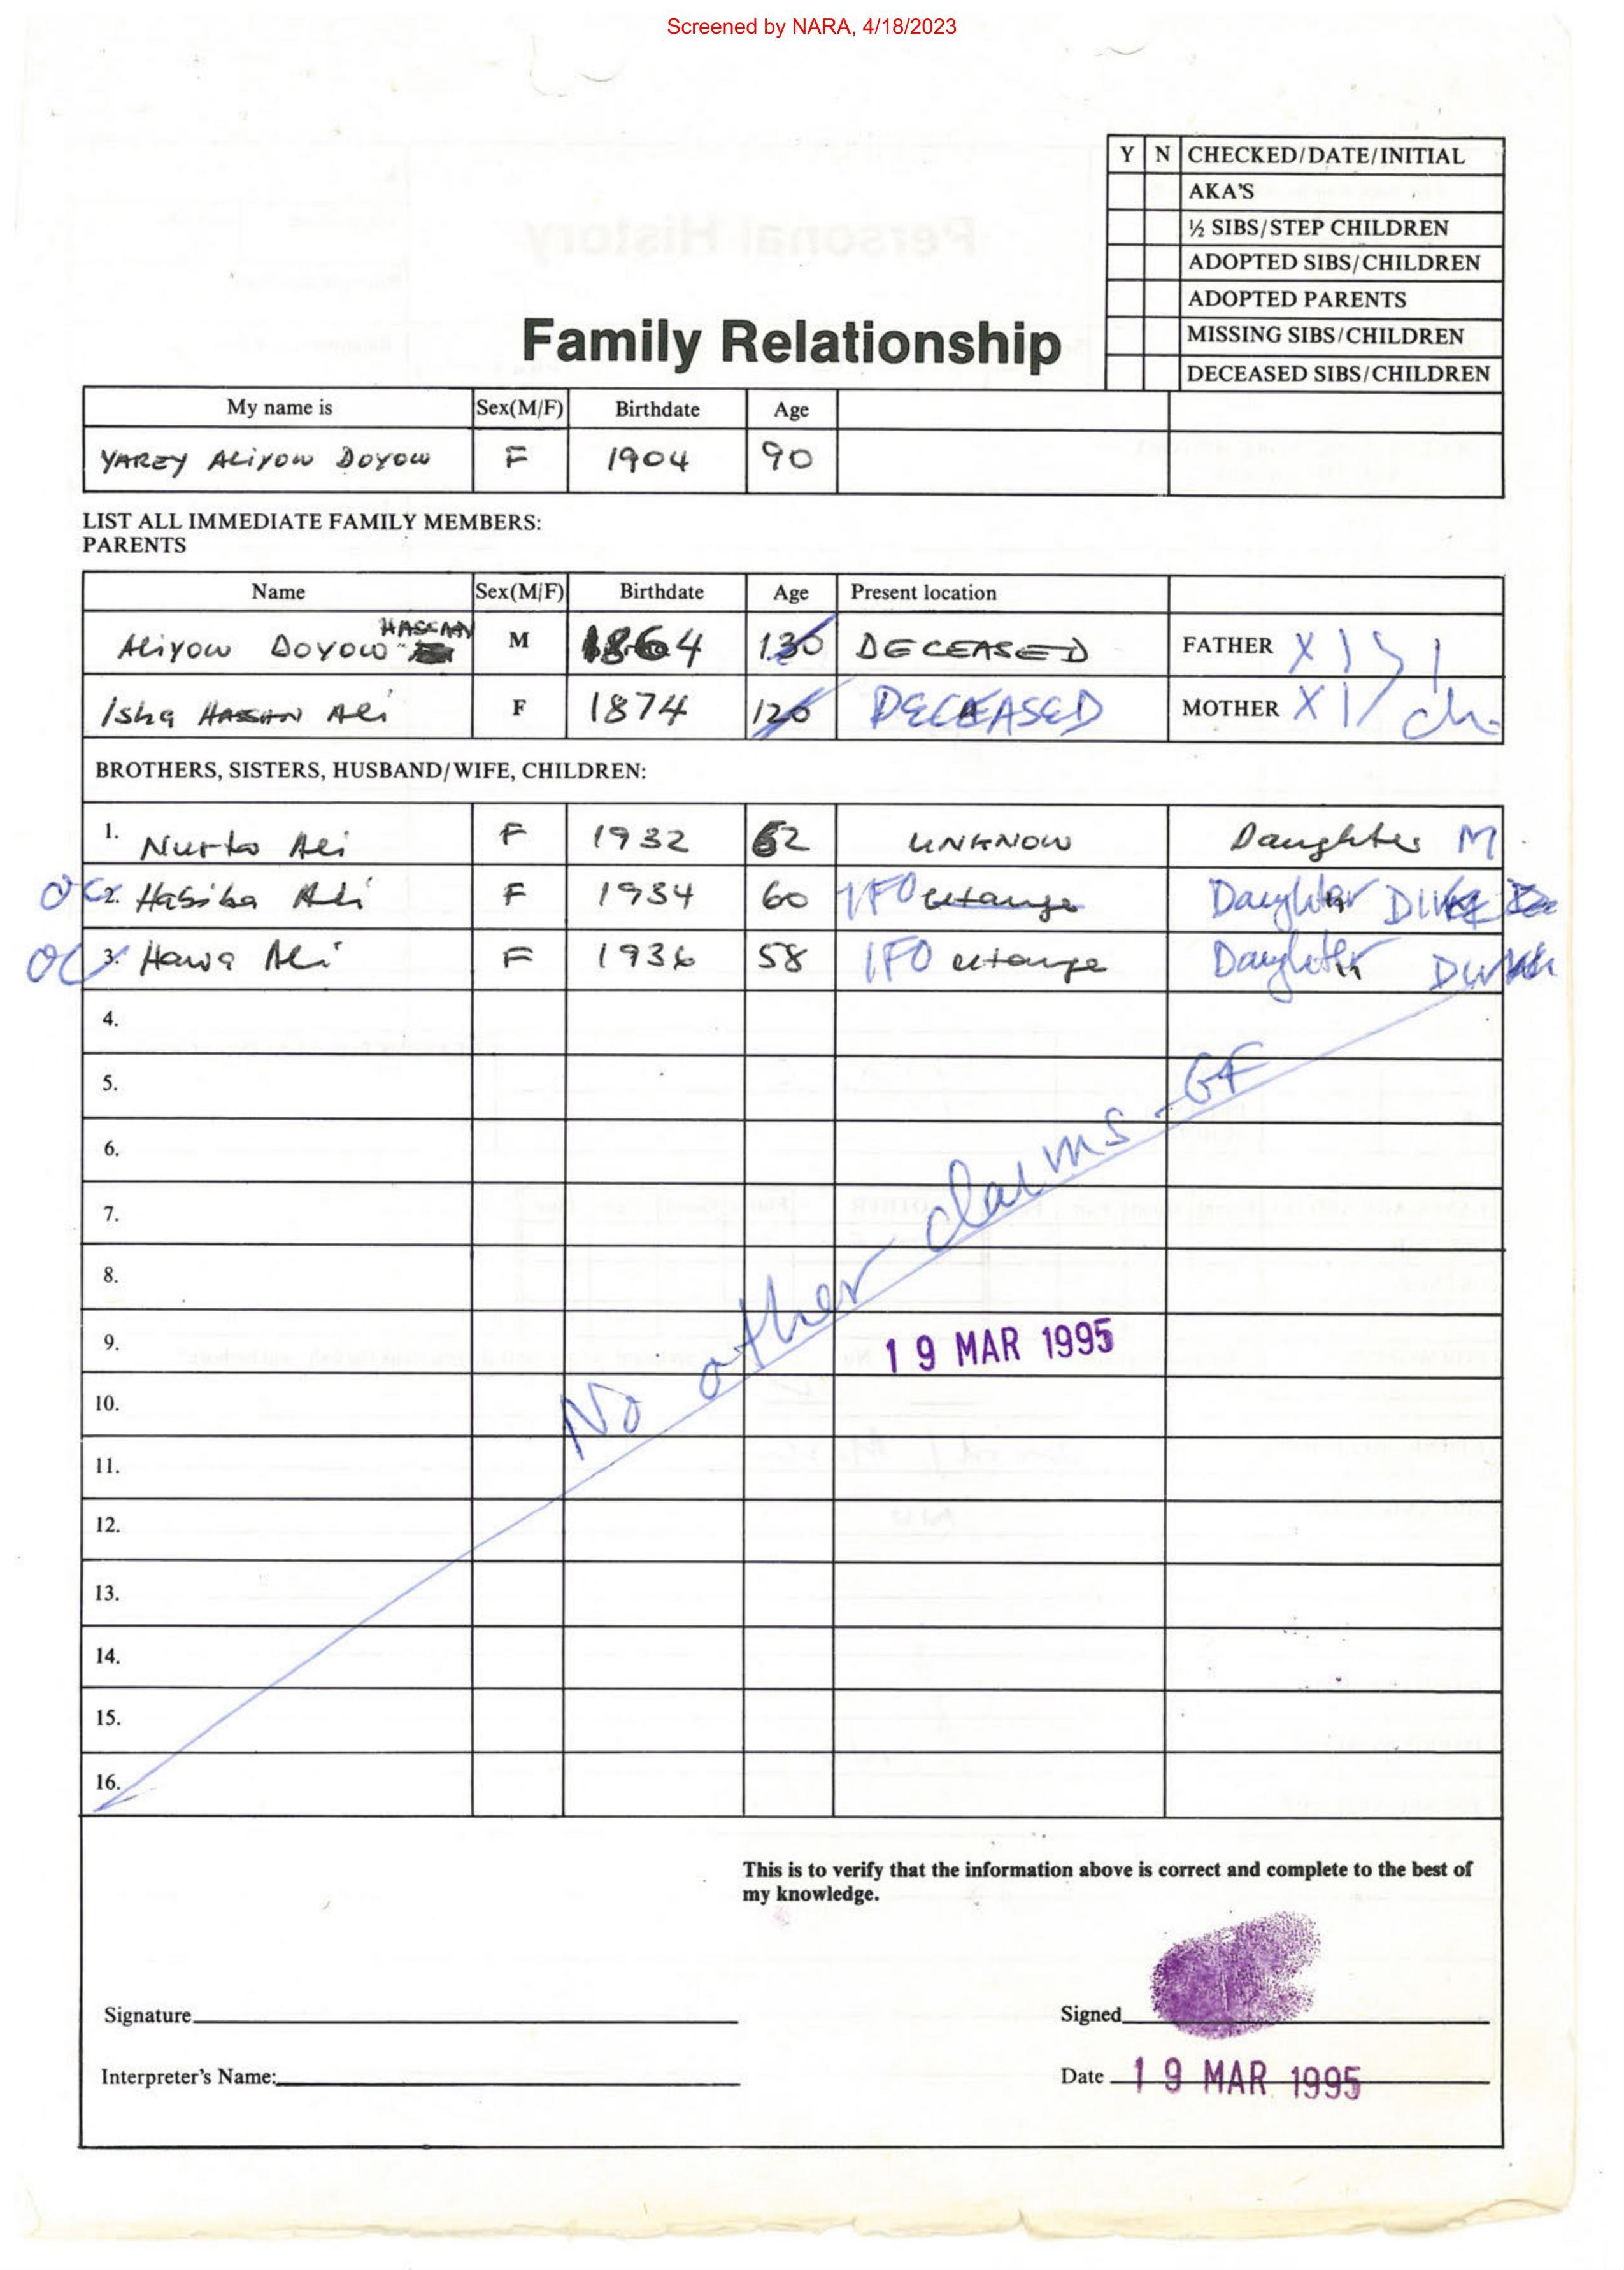 Screened by NARA, 4/18/2023
Y N CHECKED/DATE/INITIAL
AKA'S
½ SIBS/STEP CHILDREN
ADOPTED SIBS/CHILDREN
ADOPTED PARENTS
MISSING SIBS/CHILDREN
DECEASED SIBS/CHILDREN
Personal History
Family Relationship
My name is Sex(M/F) Birthdate Age
YAREY ALIYOW DOYOW F 1904 90
LIST ALL IMMEDIATE FAMILY MEMBERS:
PARENTS
Name Sex(M/F) Birthdate Age Present location
ALIYOW DOYOW HASSAN M 1864 130 DECEASED FATHER X
Isha HASSAN ALi F 1874 120 DECEASED MOTHER X
BROTHERS, SISTERS, HUSBAND/WIFE, CHILDREN:
1. Nurto ALi F 1932 62 UNKNOW Daughter M
OC 2. Habiba ALi F 1934 60 IFO Daughter
OC 3. Hawa ALi F 1936 58 IFO Daughter
4.
5.
6.
7.
8.
No other claims - GF
9. 19 MAR 1995
10.
11.
12.
13.
14.
15.
16.
This is to verify that the information above is correct and complete to the best of
my knowledge.
Signature Signed
Interpreter's Name: Date 19 MAR 1995